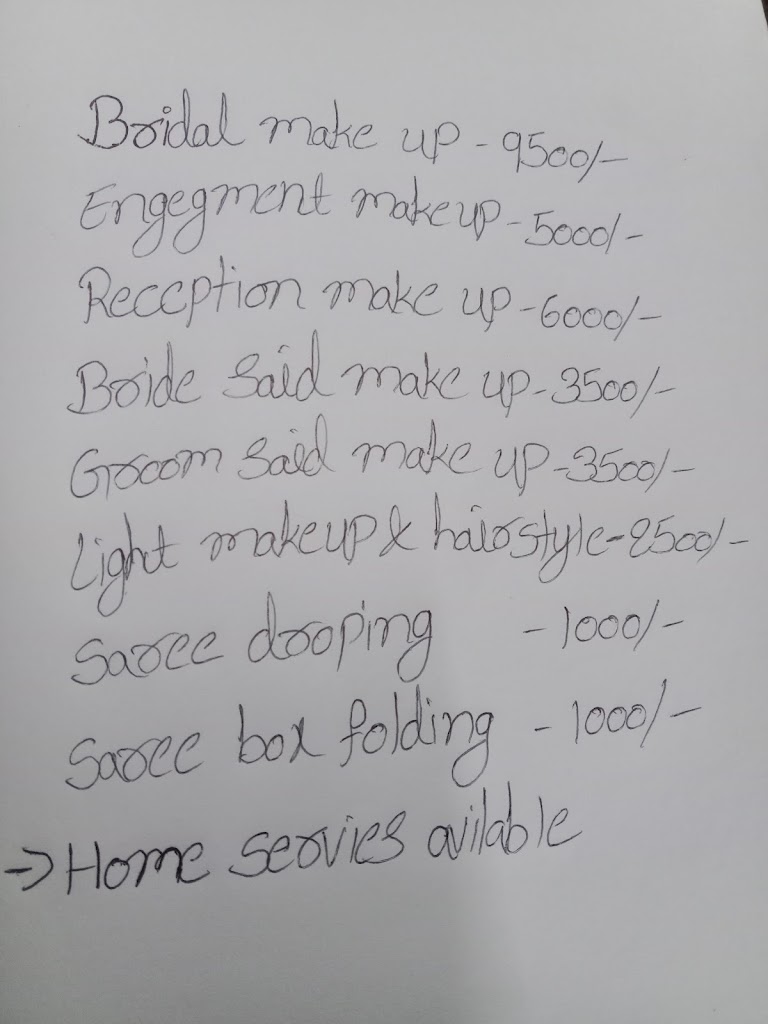 Bridal make up - 9500/-
Engegment makeup - 5000/-
Reception make up - 6000/-
Bride said make up - 3500/-
Groom said make up - 3500/-
Light makeup & hairstyle - 2500/-
Saree drooping - 1000/-
Saree box folding - 1000/-
→ Home servies avilable